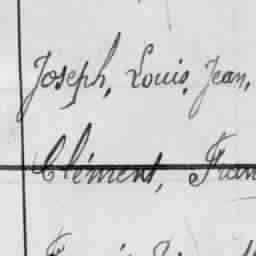 Joseph, Louis, Jean,
Clément, Fran